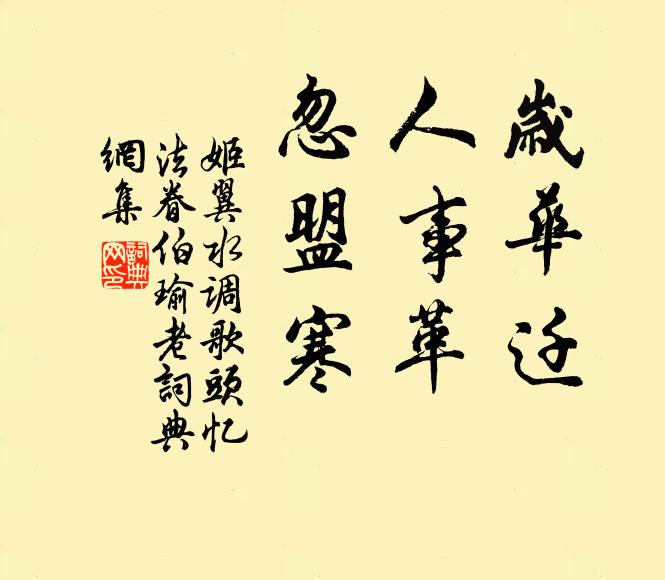 歲華迁
人事革
忽盟寒
姬翼水调歌頭忆
法眷伯瑜老詞典
網集
詞典網印